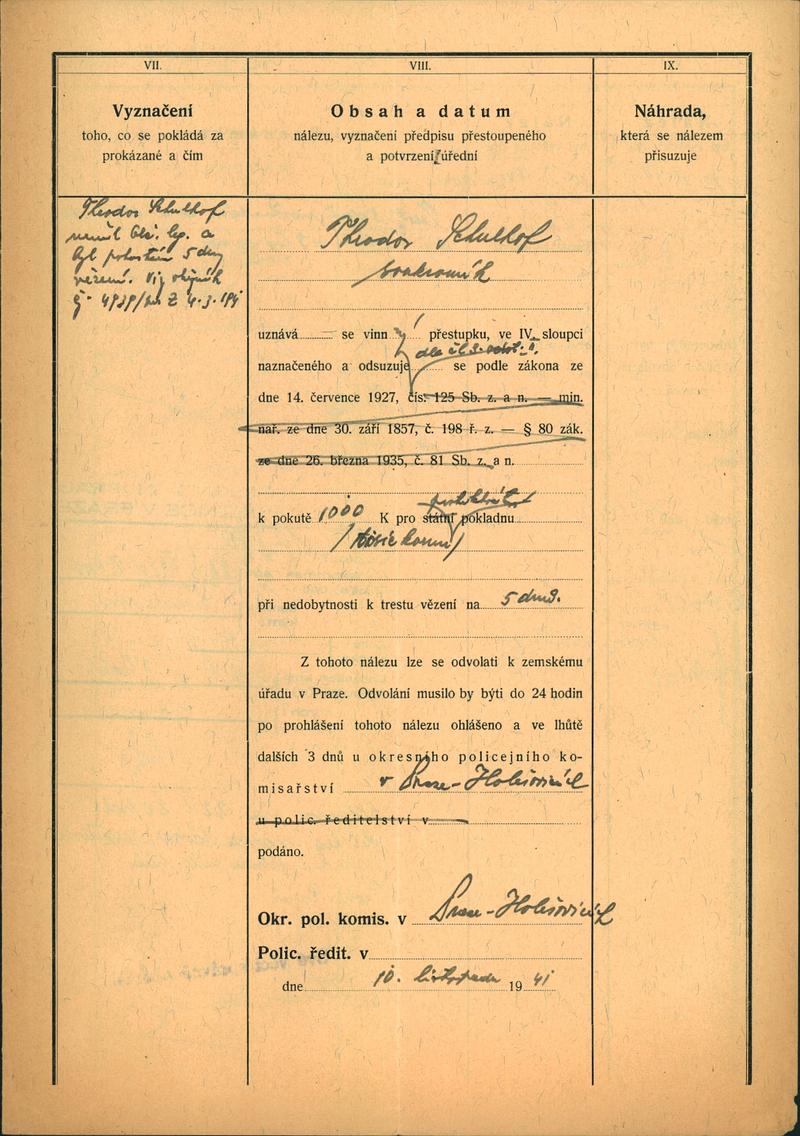 VII.
VIII.
IX.
Vyznačení
toho, co se pokládá za
prokázané a čím
Obsah a datum
nálezu, vyznačení předpisu přestoupeného
a potvrzení úřední
Náhrada,
která se nálezem
přisuzuje
Theodor Schulhof
neměl obč. leg. a
byl potrestán 5 dny
vězení. Viz
Theodor Schulhof
soukromník
uznává se vinn ý přestupku, ve IV. sloupci
dle čl. 3. odst.
naznačeného a odsuzuje se podle zákona ze
dne 14. července 1927, čís. 125 Sb. z. a n. — min.
nař. ze dne 30. září 1857, č. 198 ř. z. — § 80 zák.
ze dne 26. března 1935, č. 81 Sb. z. a n.
k pokutě 1000 K pro státní pokladnu
/tisíc korun/
při nedobytnosti k trestu vězení na 5 dnů.
Z tohoto nálezu lze se odvolati k zemskému
úřadu v Praze. Odvolání musilo by býti do 24 hodin
po prohlášení tohoto nálezu ohlášeno a ve lhůtě
dalších 3 dnů u okresního policejního ko-
misařství v Praze-Holešovicích
u polic. ředitelství v
podáno.
Okr. pol. komis. v Praze-Holešovicích
Polic. ředit. v
dne 10. listopadu 19 41